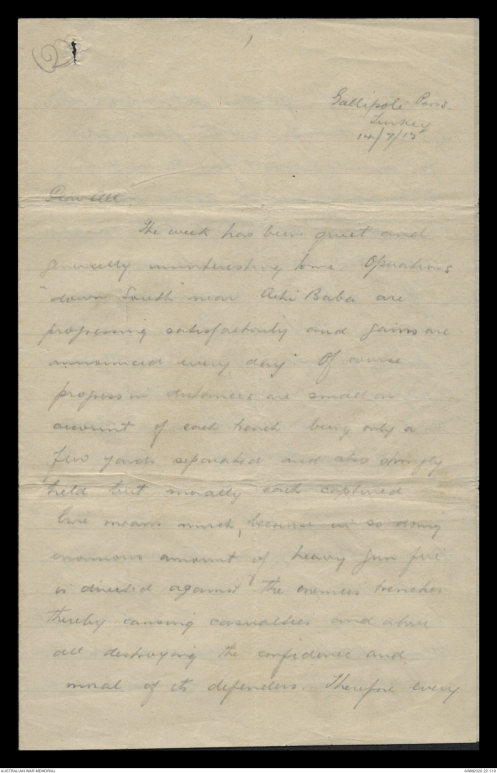 1
Gallipoli Pens.
Turkey
14/7/15
Dear All
The week has been quiet and
generally uninteresting one. Operations
"down South" near Achi Baba are
progressing satisfactorily and gains are
announced every day. Of course
progress in distances are small on
account of each trench being only a
few yards separated and also strongly
held but morally each captured
line means much, because in so doing
enormous amount of heavy gun fire
is directed against the enemies trenches
thereby causing casualties and above
all destroying the confidence and
moral of its defenders. Therefore every
AUSTRALIAN WAR MEMORIAL